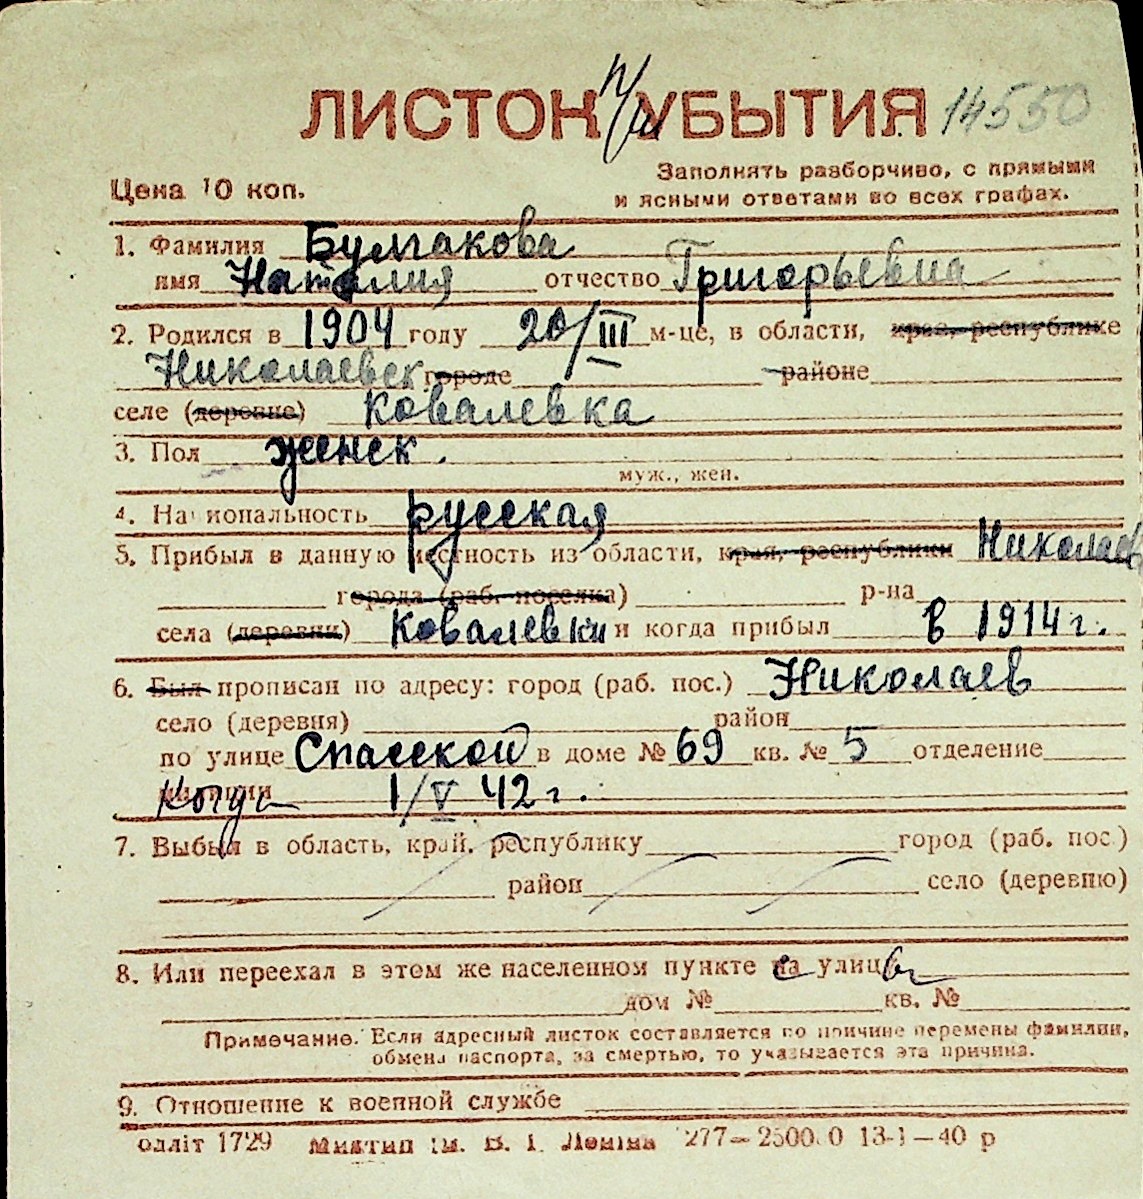 ЛИСТОК УБЫТИЯ 14550
Цена 10 коп.
Заполнять разборчиво, с прямыми
и ясными ответами во всех графах.
1. Фамилия Булгакова
имя Наталия отчество Григорьевна
2. Родился в 1904 году 20/III м-це, в области, края, республике
Николаевск городе районе
селе (деревне) Ковалевка
3. Пол женск.
муж., жен.
4. Национальность русская
5. Прибыл в данную местность из области, края, республики Николаев
города (раб. поселка) р-на
села (деревни) Ковалевки и когда прибыл в 1914 г.
6. Был прописан по адресу: город (раб. пос.) Николаев
село (деревня) район
по улице Спасской в доме № 69 кв. № 5 отделение
милиции Когда 1/V 42 г.
7. Выбыл в область, край, республику город (раб. пос.)
район село (деревню)
8. Или переехал в этом же населенном пункте на улицу
дом № кв. №
Примечание. Если адресный листок составляется по причине перемены фамилии,
обмена паспорта, за смертью, то указывается эта причина.
9. Отношение к военной службе
одліт 1729 Миктип ім. В. І. Леніна 277— 2500 0 13-1—40 р